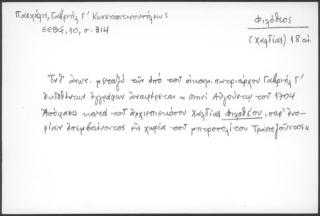 Πασχάλη, Γαβριήλ Γ' Κωνσταντινουπόλεως
ΕΕΒΣ, 10, σ. 314
Φιλόθεος
(Χαλδίας) 18 αἰ.
Ἔνθ' ἀνωτ. μεταξὺ τῶν ὑπὸ τοῦ οἰκουμ. πατριάρχου Γαβριὴλ Γ'
ἐκδοθέντων ἐγγράφων ἀναφέρεται « μηνὶ Αὐγούστῳ τοῦ 1704
Ἀπόφασις κατὰ τοῦ ἀρχιεπισκόπου Χαλδίας Φιλοθέου, παρ' ἐνο-
ρίαν ἐπεμβαίνοντος εἰς χωρία τοῦ μητροπολίτου Τραπεζοῦντος»